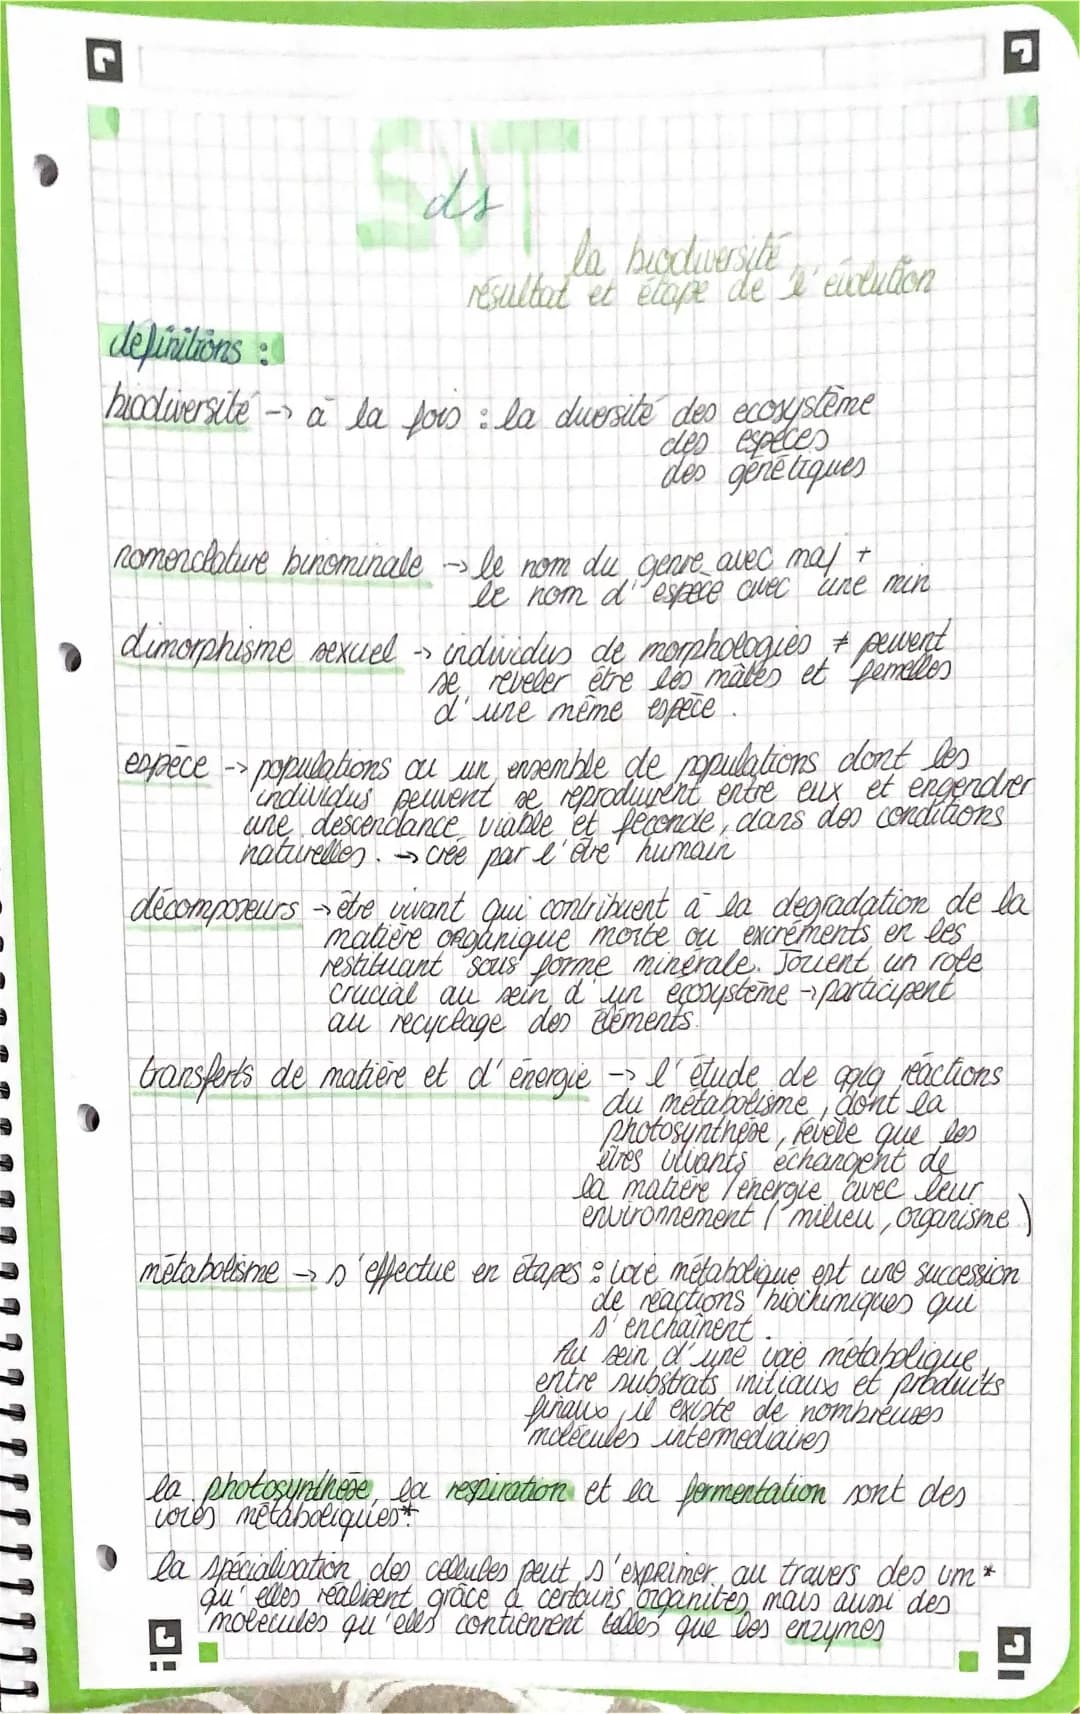 SVT
ds
la biodiversité
résultat et étape de l'évolution
definitions :
biodiversité → à la fois : la diversité des ecosystème
des espèces
des génétiques
nomenclature binominale → le nom du genre avec maj +
le nom d'espèce avec une min
dimorphisme sexuel → individus de morphologies ≠ peuvent
se reveler être les mâles et femelles
d'une même espèce.
espèce → populations ou un ensemble de populations dont les
individus peuvent se reproduisent entre eux et engendrer
une descendance viable et féconde, dans des conditions
naturelles. → crée par l'être humain
décomposeurs → être vivant qui contribuent à la degradation de la
matière organique morte ou excréments en les
restituant sous forme minérale. Jouent un role
crucial au sein d'un écosystème → participent
au recyclage des éléments.
transferts de matière et d'énergie → l'étude de qqlq réactions
du métabolisme, dont la
photosynthèse, révèle que les
êtres vivants échangent de
la matière / énergie avec leur
environnement (milieu, organisme)
métabolisme → s'effectue en étapes : voie métabolique est une succession
de réactions biochimiques qui
s'enchaînent.
Au sein d'une voie métabolique,
entre substrats initiaux et produits
finaux, il existe de nombreuses
molécules intermediaires
la photosynthèse, la respiration et la fermentation sont des
voies métaboliques*
la spécialisation des cellules peut s'exprimer au travers des vm*
qu'elles réalisent grâce à certains organites mais aussi des
molécules qu'elles contiennent telles que les enzymes